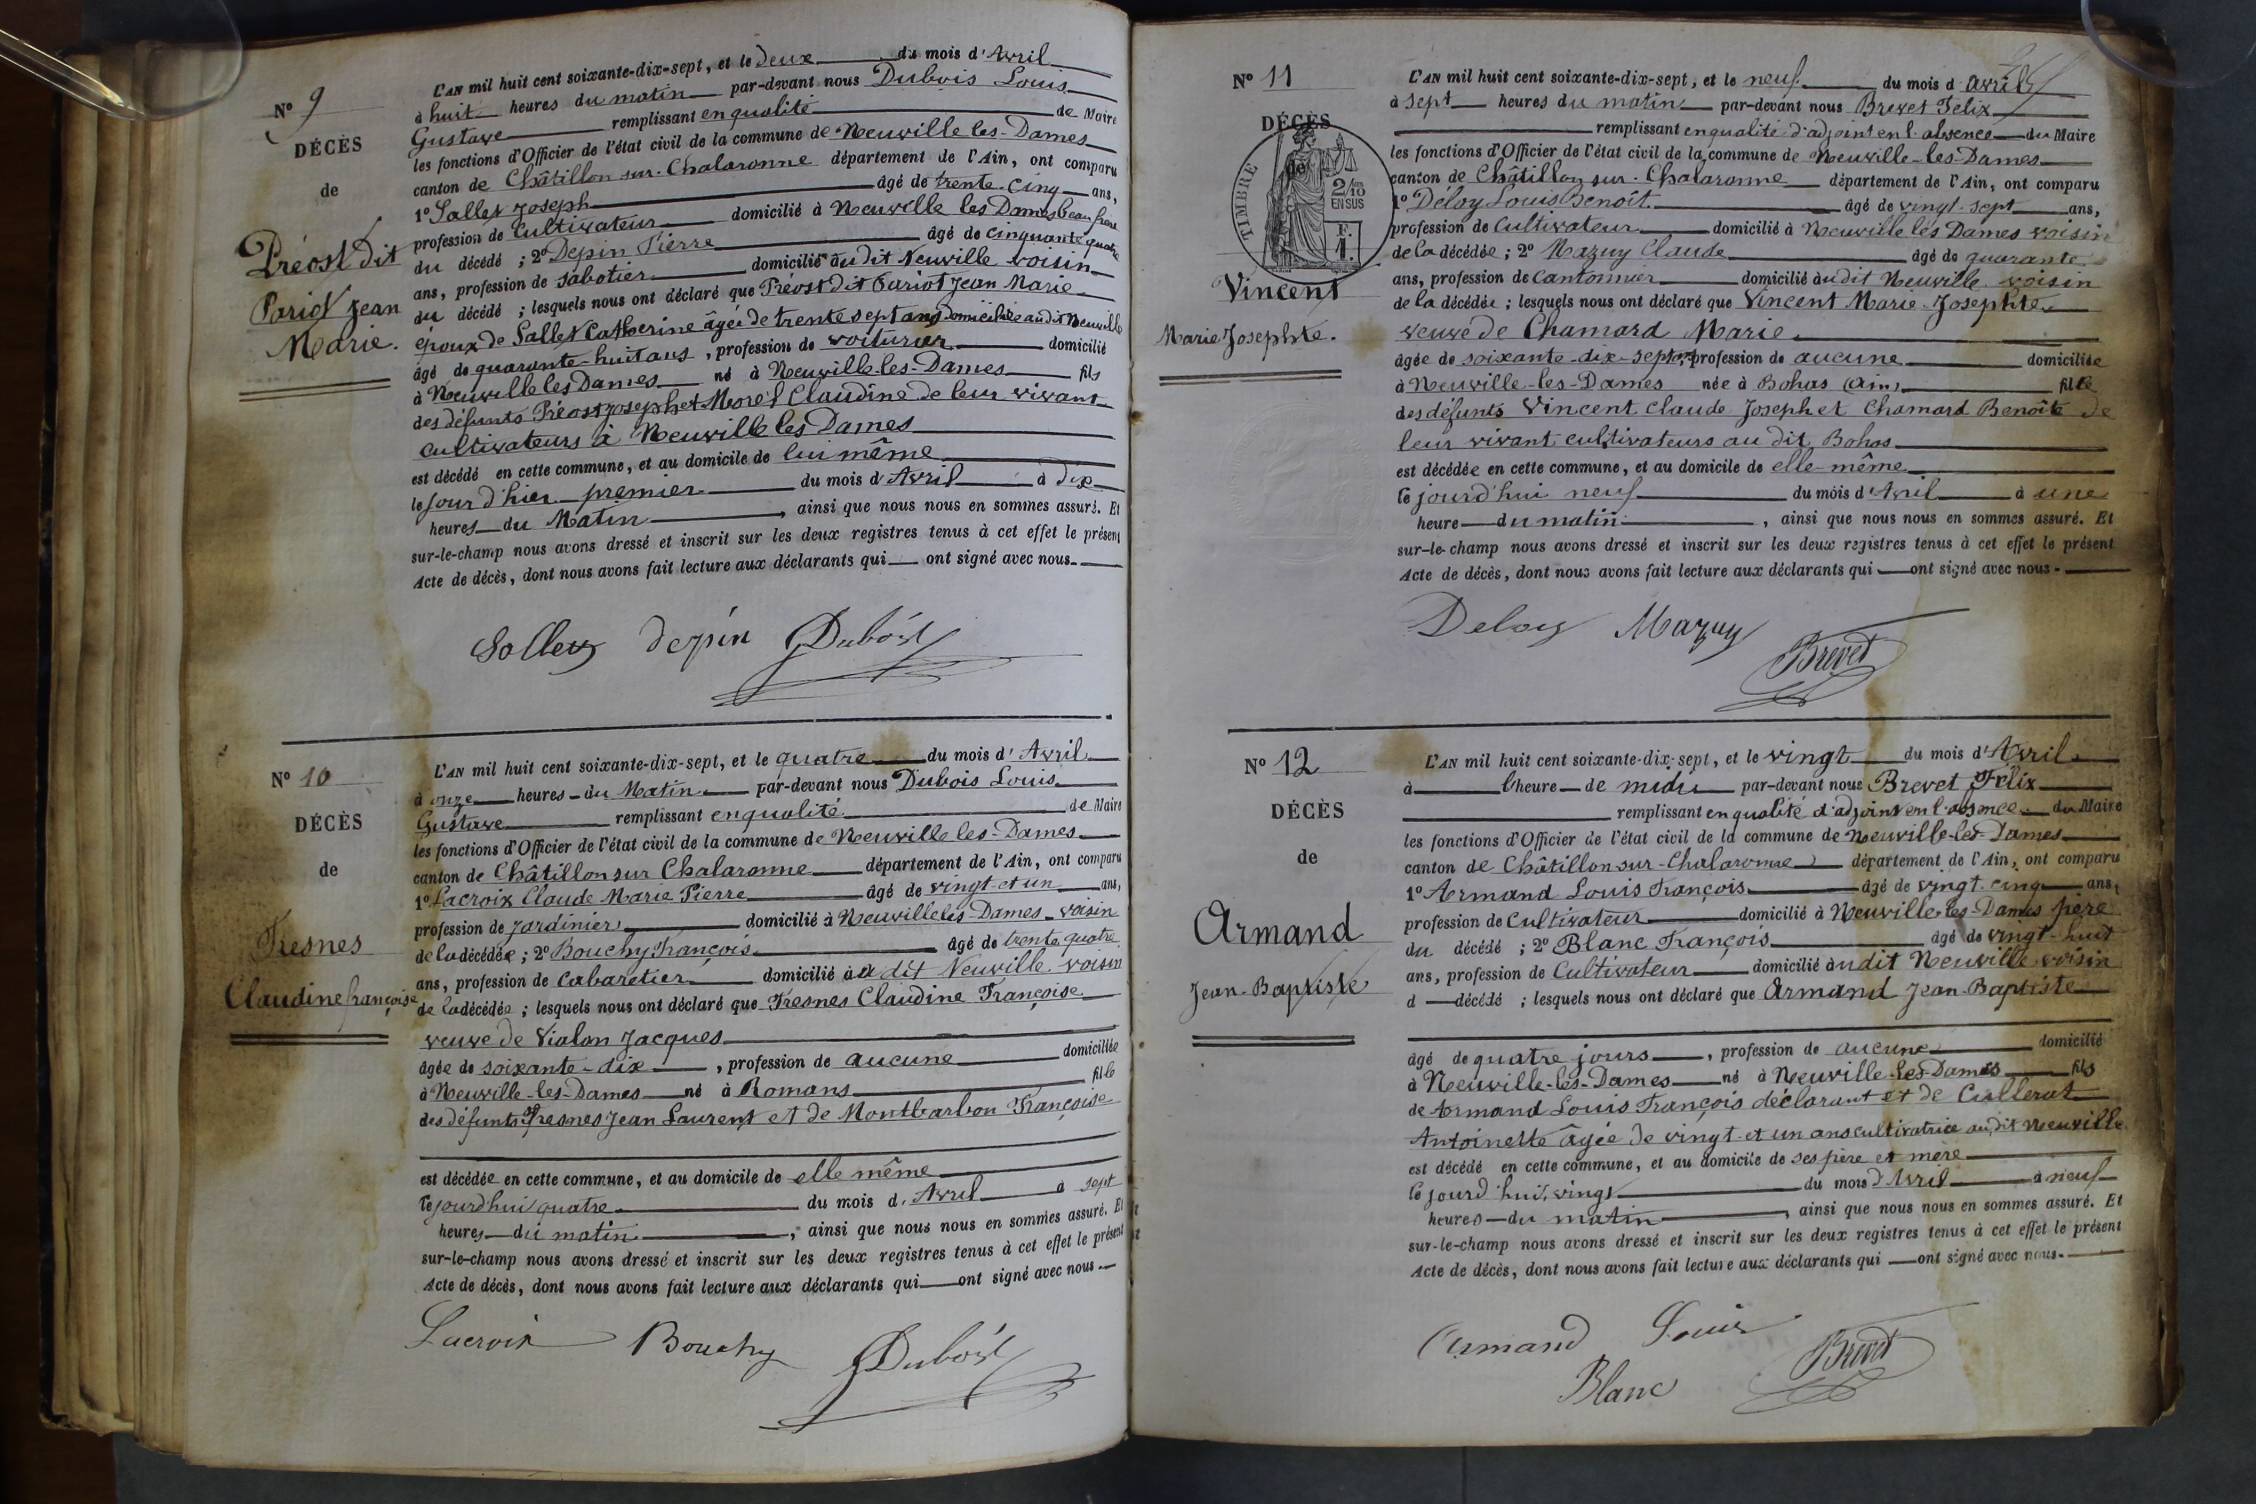 N° 9
DÉCÈS
de
Préost dit
Pariot Jean
Marie.
L'AN mil huit cent soixante-dix-sept, et le deux du mois d'Avril
à huit heures du matin par-devant nous Dubois Louis
Gustave remplissant en qualité de Maire
les fonctions d'Officier de l'état civil de la commune de Neuville les-Dames
canton de Châtillon sur-Chalaronne département de l'Ain, ont comparu
1° Sallet Joseph âgé de trente-cinq ans,
profession de cultivateur domicilié à Neuville les Dames beau frère
du décédé ; 2° Depin Pierre âgé de cinquante quatre
ans, profession de sabotier domicilié au dit Neuville voisin
du décédé ; lesquels nous ont déclaré que Préost dit Pariot Jean Marie
époux de Sallet Catherine âgée de trente sept ans domiciliée au dit Neuville
âgé de quarante-huit ans, profession de voiturier domicilié
à Neuville les Dames né à Neuville-les-Dames fils
des défunts Préost Joseph et Morel Claudine de leur vivant
cultivateurs à Neuville les Dames
est décédé en cette commune, et au domicile de lui même
le jour d'hier premier du mois d'Avril à dix
heures du Matin, ainsi que nous nous en sommes assuré. Et
sur-le-champ nous avons dressé et inscrit sur les deux registres tenus à cet effet le présent
Acte de décès, dont nous avons fait lecture aux déclarants qui ont signé avec nous.
Sallet depin Dubois
N° 10
DÉCÈS
de
Fresnes
Claudine françoise
L'AN mil huit cent soixante-dix-sept, et le quatre du mois d'Avril
à onze heures du Matin par-devant nous Dubois Louis
Gustave remplissant en qualité de Maire
les fonctions d'Officier de l'état civil de la commune de Neuville les-Dames
canton de Châtillon sur Chalaronne département de l'Ain, ont comparu
1° Lacroix Claude Marie Pierre âgé de vingt-et un ans,
profession de Jardinier domicilié à Neuville les-Dames voisin
de la décédée ; 2° Bouchy François âgé de trente quatre
ans, profession de Cabaretier domicilié au dit Neuville voisin
de la décédée ; lesquels nous ont déclaré que Fresnes Claudine Françoise
veuve de Violon Jacques
âgée de soixante-dix, profession de aucune domiciliée
à Neuville-les-Dames né à Romans fille
des défunts Fresnes Jean Laurent et de Montbarbon Françoise
est décédée en cette commune, et au domicile de elle même
le jourd'hui quatre du mois d'Avril à sept
heures du matin, ainsi que nous nous en sommes assuré. Et
sur-le-champ nous avons dressé et inscrit sur les deux registres tenus à cet effet le présent
Acte de décès, dont nous avons fait lecture aux déclarants qui ont signé avec nous.
Lacroix Bouchy Dubois
N° 11
DÉCÈS
de
TIMBRE
2/10
EN SUS
F.
1.
Vincent
Marie Josephte.
L'AN mil huit cent soixante-dix-sept, et le neuf du mois d'avril
à sept heures du matin par-devant nous Brevet Félix
remplissant en qualité d'adjoint en l'absence du Maire
les fonctions d'Officier de l'état civil de la commune de Neuville-les-Dames
canton de Châtillon sur-Chalaronne département de l'Ain, ont comparu
1° Déloy Louis Benoît âgé de vingt-sept ans,
profession de Cultivateur domicilié à Neuville les Dames voisin
de la décédée ; 2° Mazuy Claude âgé de quarante
ans, profession de Cantonnier domicilié au dit Neuville voisin
de la décédée ; lesquels nous ont déclaré que Vincent Marie Josephte
veuve de Chamard Marie
âgée de soixante-dix-sept ans, profession de aucune domiciliée
à Neuville-les-Dames née à Bohas (Ain) fille
des défunts Vincent Claude Joseph et Chamard Benoîte de
leur vivant cultivateurs au dit Bohas
est décédée en cette commune, et au domicile de elle-même
le jourd'hui neuf du mois d'Avril à une
heure du matin, ainsi que nous nous en sommes assuré. Et
sur-le-champ nous avons dressé et inscrit sur les deux registres tenus à cet effet le présent
Acte de décès, dont nous avons fait lecture aux déclarants qui ont signé avec nous.
Deloy Mazuy
Brevet
N° 12
DÉCÈS
de
Armand
Jean-Baptiste
L'AN mil huit cent soixante-dix-sept, et le vingt du mois d'Avril
à l'heure de midi par-devant nous Brevet Félix
remplissant en qualité d'adjoint en l'absence du Maire
les fonctions d'Officier de l'état civil de la commune de Neuville-les-Dames
canton de Châtillon sur-Chalaronne département de l'Ain, ont comparu
1° Armand Louis François âgé de vingt-cinq ans,
profession de Cultivateur domicilié à Neuville-les-Dames père
du décédé ; 2° Blanc François âgé de vingt-huit
ans, profession de Cultivateur domicilié au dit Neuville voisin
d décédé ; lesquels nous ont déclaré que Armand Jean-Baptiste
âgé de quatre jours, profession de aucune domicilié
à Neuville-les-Dames né à Neuville-les-Dames fils
de Armand Louis François déclarant et de Cullerat
Antoinette âgée de vingt-et un ans cultivatrice au dit Neuville
est décédé en cette commune, et au domicile de ses père et mère
le jourd'hui vingt du mois d'Avril à neuf
heures du matin, ainsi que nous nous en sommes assuré. Et
sur-le-champ nous avons dressé et inscrit sur les deux registres tenus à cet effet le présent
Acte de décès, dont nous avons fait lecture aux déclarants qui ont signé avec nous.
Armand Louis
Blanc Brevet